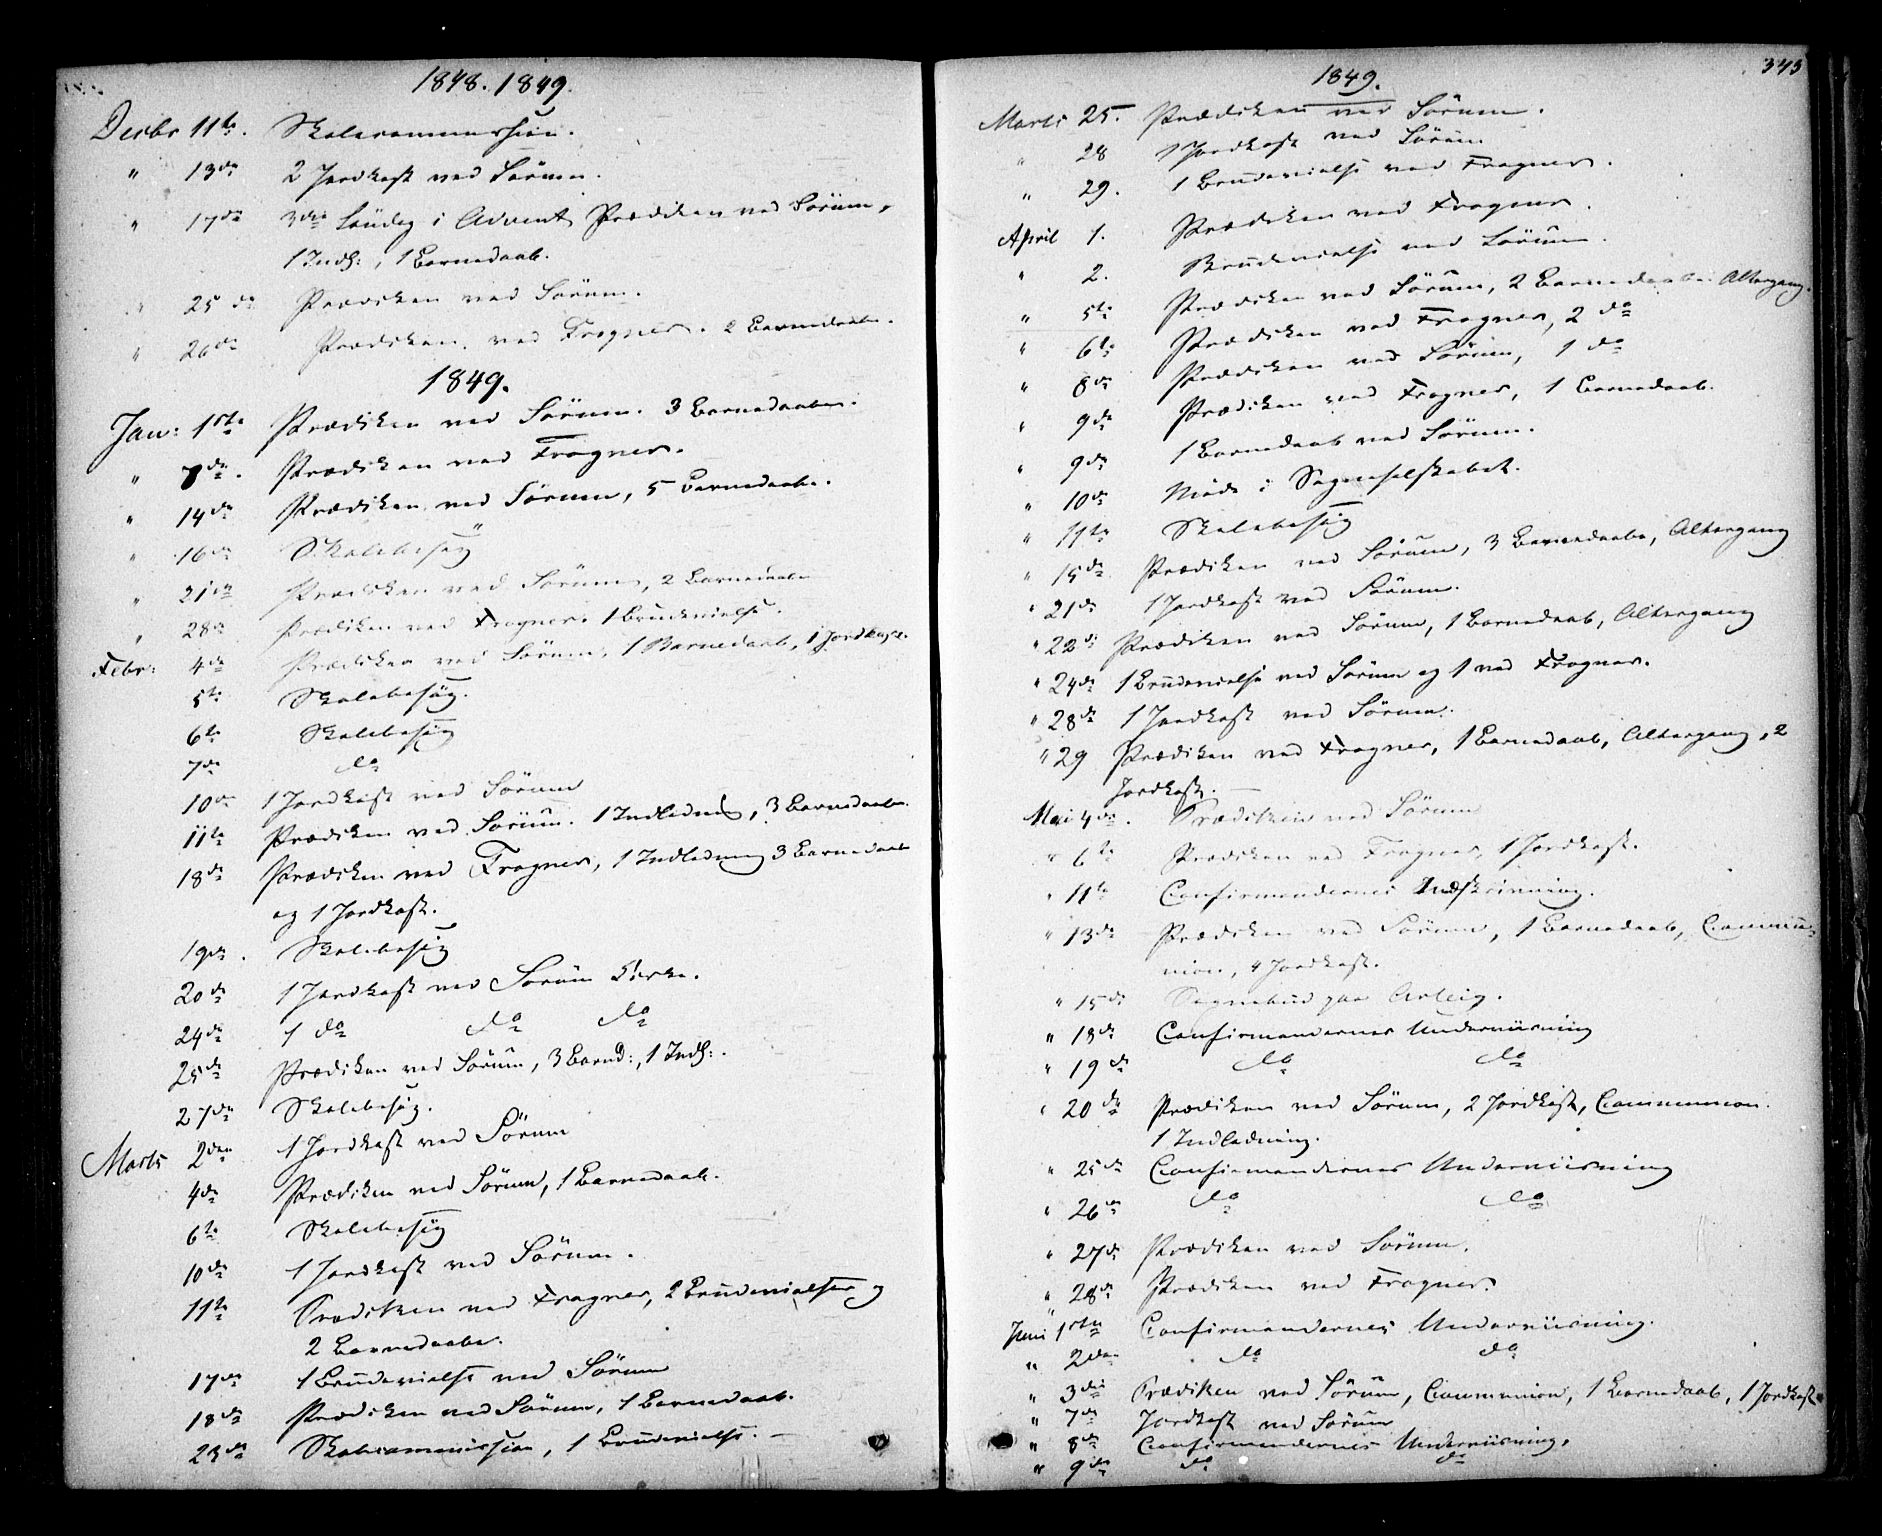 1848. 1849.
Decbr 11te. Skolecommission.
" 13de 2 Jordkast ved Sörum.
" 17de 3die Söndag i Advent Prædiken ved Sörum,
1 Indl:, 1 Barnedaab.
" 25de Prædiken ved Sörum.
" 26de Prædiken ved Frogner. 2 Barnedaabe.
1849.
Jan: 1ste Prædiken ved Sörum. 3 Barnedaabe.
" 7de. Prædiken ved Frogner.
" 14de Prædiken ved Sörum, 5 Barnedaabe.
" 16de Skolebesög
" 21de Prædiken ved Sörum, 2 Barnedaabe
" 28de Prædiken ved Frogner. 1 Brudevielse.
Febr: 4de Prædiken ved Sörum, 1 Barnedaab, 1 Jordkast.
5te Skolebesög.
6te Skolebesög
7de do
10de 1 Jordkast ved Sörum
11te Prædiken ved Sörum. 1 Indledning, 3 Barnedaabe.
18de Prædiken ved Frogner, 1 Indledning 3 Barnedaab
og 1 Jordkast.
19de. Skolebesög
20de 1 Jordkast ved Sörum Kirke.
24de 1 do do do
25de Prædiken ved Sörum, 3 Barnd:, 1 Indl:.
27de Skolebesög.
Marts 2den 1 Jordkast ved Sörum
4de Prædiken ved Sörum, 1 Barnedaab.
6te Skolebesög
10de 1 Jordkast ved Sörum.
11te Prædiken ved Frogner, 2 Brudevielser og
2 Barnedaabe.
17de 1 Brudevielse ved Sörum
18de Prædiken ved Sörum, 1 Barnedaab.
23de Skolecommission, 1 Brudevielse. —
343
1849.
Marts 25. Prædiken ved Sörum.
" 28 1 Jordkast ved Sörum
" 29. 1 Brudevielse ved Frogner.
April 1. Prædiken ved Frogner.
" 2. Brudevielse ved Sörum.
" 5te Prædiken ved Sörum, 2 Barnedaabe. Altergang.
" 6te Prædiken ved Frogner, 2 do
" 8de Prædiken ved Sörum, 1 do
" 9de Prædiken ved Frogner, 1 Barnedaab.
" 9de 1 Barnedaab ved Sörum.
" 10de Möde i Sogneselskabet.
" 11te Skolebesög
" 15de Prædiken ved Sörum, 3 Barnedaabe, Altergang
" 21de 1 Jordkast ved Sörum.
" 22de Prædiken ved Sörum, 1 Barnedaab, Altergang
" 24de 1 Brudevielse ved Sörum og 1 ved Frogner.
" 28de 1 Jordkast ved Sörum.
" 29 Prædiken ved Frogner, 1 Barnedaab, Altergang, 2
Jordkast. —
Mai 4de. Prædiken ved Sörum
" 6te Prædiken ved Frogner, 1 Jordkast.
" 11te Confirmandernes Indskrivning.
" 13de Prædiken ved Sörum, 1 Barnedaab, Commu-
nion, 4 Jordkast.
" 15de Sognebud paa
" 18de Confirmandernes Underviisning
" 19de do do
" 20de Prædiken ved Sörum, 2 Jordkast, Communion.
1 Indledning.
" 25de Confirmandernes Underviisning
" 26de do do
" 27de Prædiken ved Sörum.
" 28de Prædiken ved Frogner.
Juni 1ste Confirmandernes Underviisning.
" 2den do do
" 3die Prædiken ved Sörum, Communion, 1 Barnedaab, 1 Jordkast
" 7de Jordkast ved Sörum
" 8de Confirmandernes Underviisning.
" 9de do do